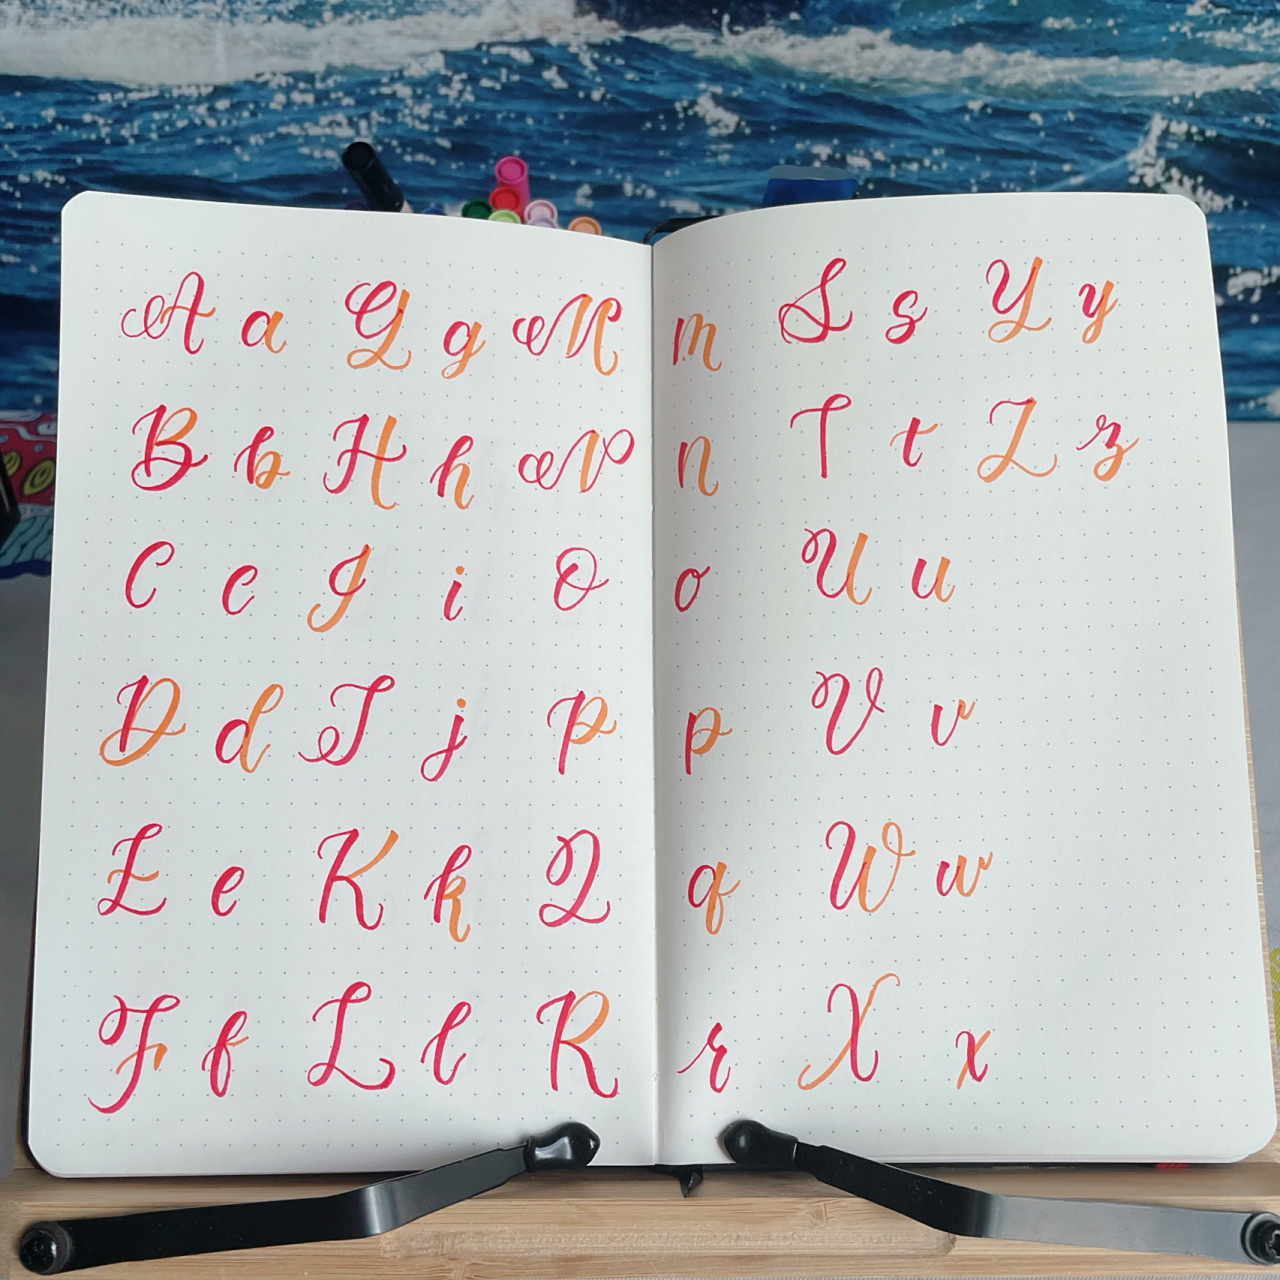 A a G g M m S s Y y
B b H h N n T t Z z
C c I i O o U u
D d J j P p V v
E e K k Q q W w
F f L l R r X x